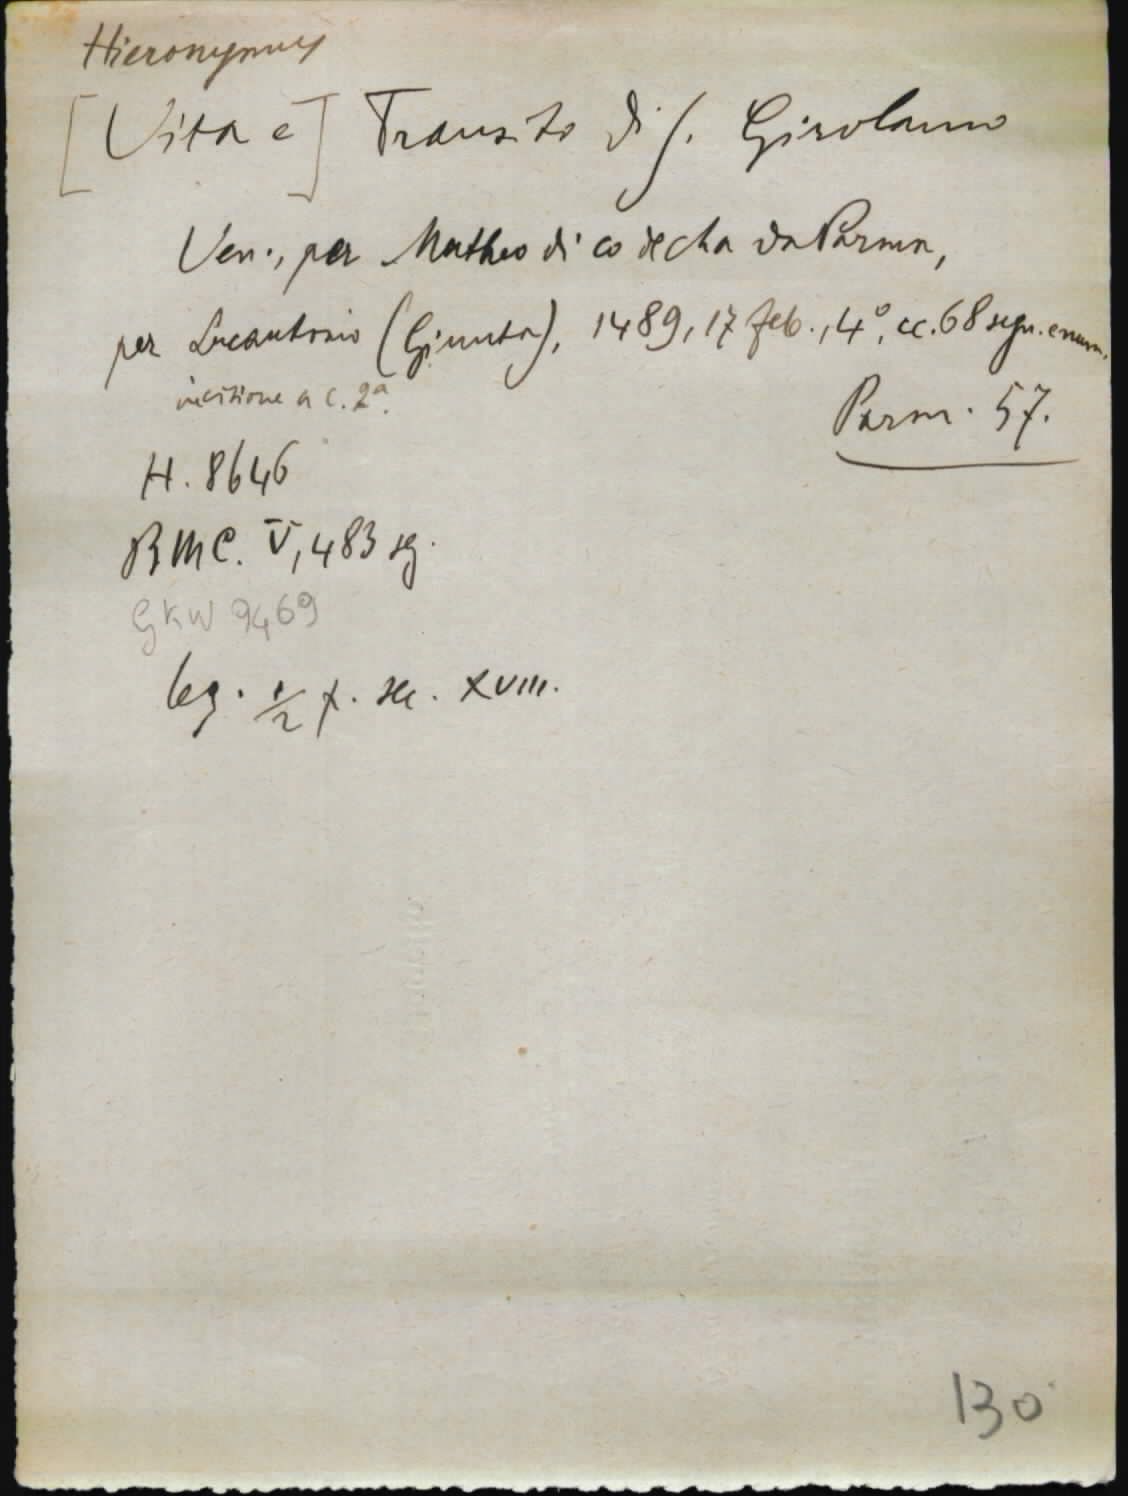 Hieronymus
[Vita e] Transito di S. Girolamo
Ven., per Matheo di co decha da Parma,
per Lucantonio (Giunta), 1489, 17 feb., 4°, cc. 68 segn. e num.
incisione a c. 2a.
Parm. 57.
H. 8646
BMC. V, 483 sg.
GKW 9469
leg. 1/2 p. sec. XVIII.
130